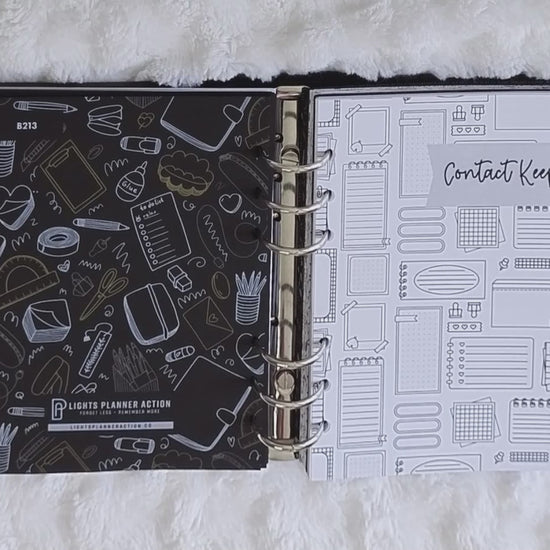 B213
Glue
to do list
LIGHTS PLANNER ACTION
FORGET LESS - REMEMBER MORE
LIGHTSPLANNERACTION.CO
Contact Kee